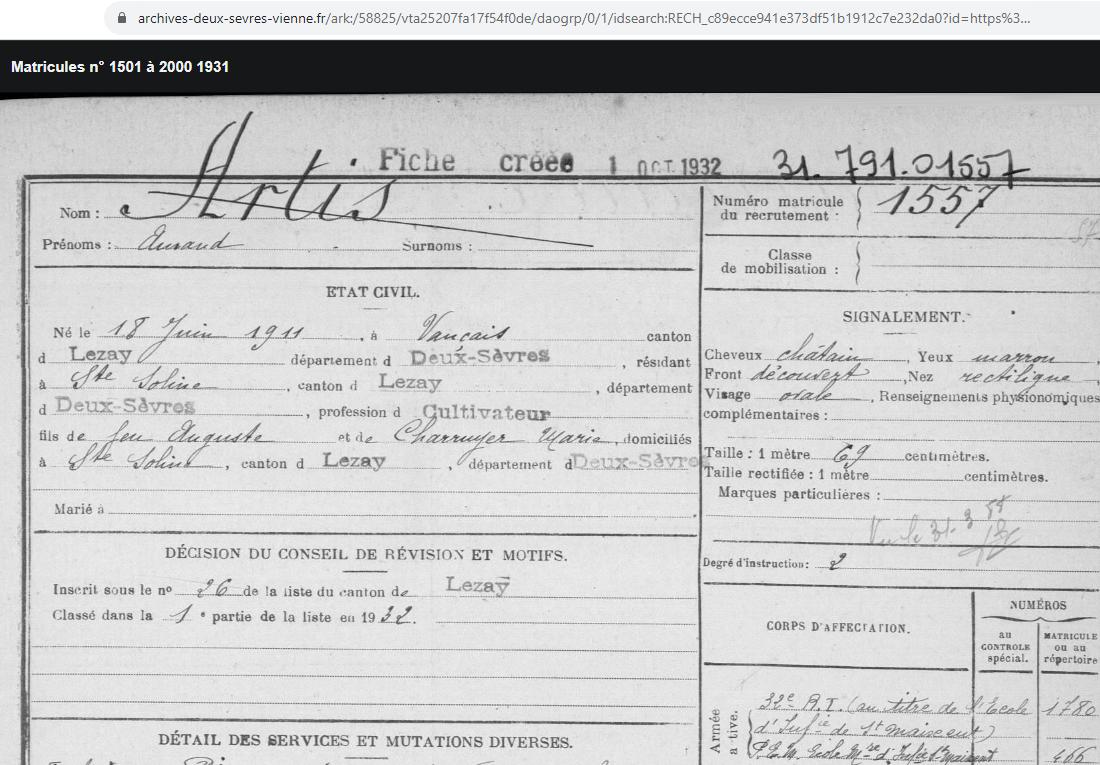 archives-deux-sevres-vienne.fr/ark:/58825/vta25207fa17f54f0de/daogrp/0/1/idsearch:RECH_c89ecce941e373df51b1912c7e232da0?id=https%3...
Matricules n° 1501 à 2000 1931
Fiche créée 1 OCT. 1932 31.791.01557
Nom : Artis
Prénoms : Surnoms :
Numéro matricule du recrutement : 1557
Classe de mobilisation :
ETAT CIVIL.
Né le 18 Juin 1911, à Vançais canton
d Lezay département d Deux-Sèvres, résidant
à Ste Soline, canton d Lezay, département
d Deux-Sèvres, profession d Cultivateur
fils de feu Auguste et de Charruyer Marie, domiciliés
à Ste Soline, canton d Lezay, département d Deux-Sèvres
Marié à
SIGNALEMENT.
Cheveux châtain, Yeux marron,
Front découvert, Nez rectiligne,
Visage ovale, Renseignements physionomiques
complémentaires :
Taille : 1 mètre 69 centimètres.
Taille rectifiée : 1 mètre centimètres.
Marques particulières :
Vu le 31.3
Degré d'instruction : 2
DÉCISION DU CONSEIL DE RÉVISION ET MOTIFS.
Inscrit sous le no 26 de la liste du canton de Lezay
Classé dans la 1e partie de la liste en 1932.
CORPS D'AFFECTATION.
NUMÉROS
au CONTROLE spécial.
MATRICULE ou au répertoire
Armée active.
32e R.I. (au titre de l'Ecole 1780
d'Infie de St Maixent)
P.E.M. Ecole Mre d'Infie St Maixent 466
DÉTAIL DES SERVICES ET MUTATIONS DIVERSES.